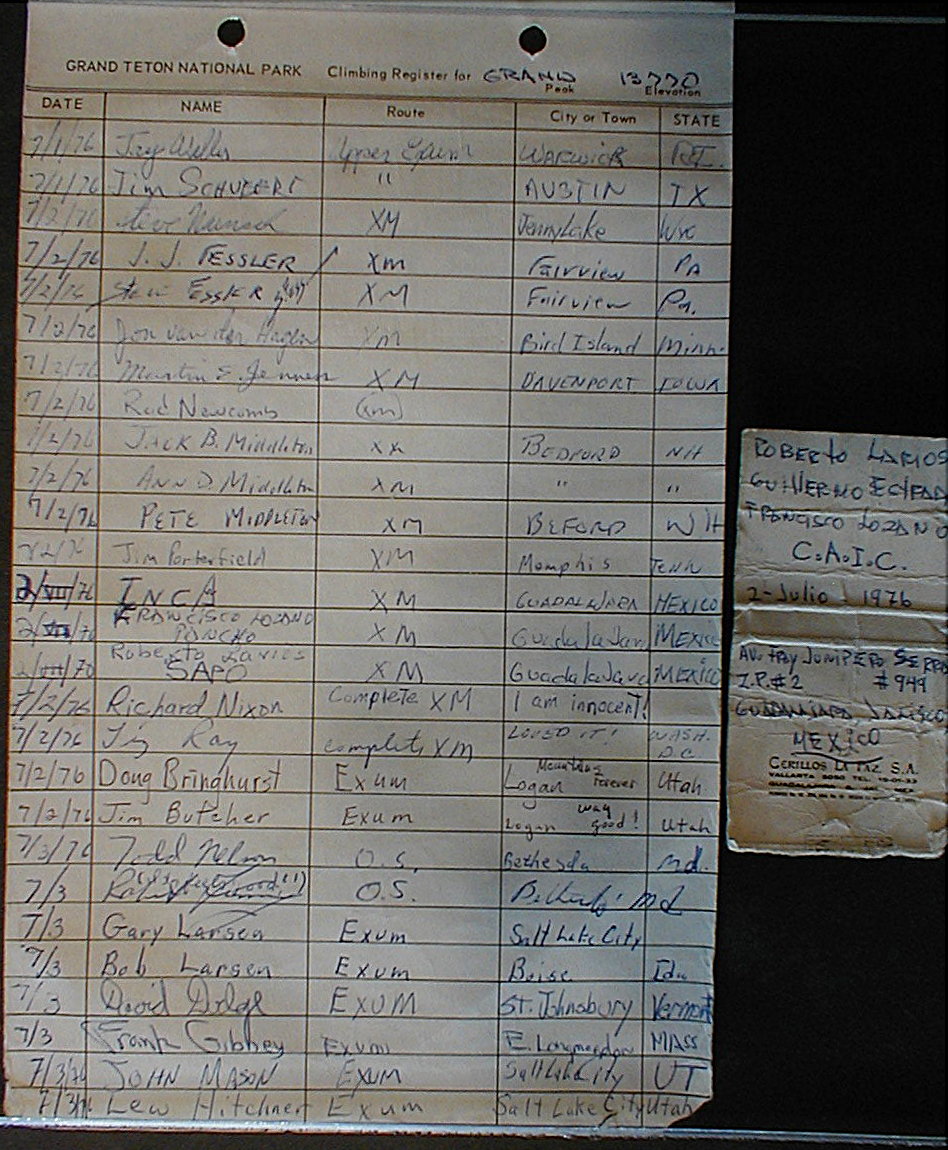 GRAND TETON NATIONAL PARK Climbing Register for GRAND 13770
Peak Elevation
DATE NAME Route City or Town STATE
7/1/76 Jay Wells Upper Exum WARWICK R.I.
7/1/76 JIM SCHUBERT " AUSTIN TX
7/2/76 Steve XM Jenny Lake Wyo
7/2/76 J. J. FESSLER XM Fairview PA
7/2/76 ESSLER XM Fairview Pa.
7/2/76 Jon van der Hagen XM Bird Island Minn.
7/2/76 Martin E. Jensen XM DAVENPORT IOWA
7/2/76 Rod Newcomb (xm)
7/2/76 JACK B. Middleton XM BEDFORD NH
7/2/76 ANN D. Middleton XM " "
7/2/76 PETE MIDDLETON XM BEFORD NH
7/2/76 Jim Porterfield XM Memphis TENN
2/VII/76 INCA XM GUADALAJARA MEXICO
2/VII/76 FRANCISCO LOZANO PANCHO XM Guadalajara MEXICO
2/VII/76 Roberto Larios SAPO XM Guadalajara MEXICO
7/2/76 Richard Nixon Complete XM I am innocent!
7/2/76 Ray complete XM LOVED IT! WASH. D.C.
7/2/76 Doug Bringhurst Exum Logan Mountains Forever Utah
7/2/76 Jim Butcher Exum Logan way good! Utah
7/3/76 Todd Nelson O.S. Bethesda Md.
7/3 O.S. Md
7/3 Gary Larsen Exum Salt Lake City
7/3 Bob Larsen Exum Boise Ida
7/3 David Dodge EXUM ST. Johnsbury Vermont
7/3 Frank Gibbey Exum E. Longmeadow MASS
7/3/76 JOHN MASON EXUM Salt Lake City UT
7/3/76 Lew Hitchner Exum Salt Lake City Utah
ROBERTO LARIOS
GUILLERMO
FRANCISCO LOZANO
C.A.I.C.
2-Julio 1976
AV. FRAY JUNIPERO SERRA
Z.P.#2 #949
GUADALAJARA JALISCO
MEXICO
CERILLOS LA PAZ, S.A.
VALLARTA TEL.
GUADALAJARA